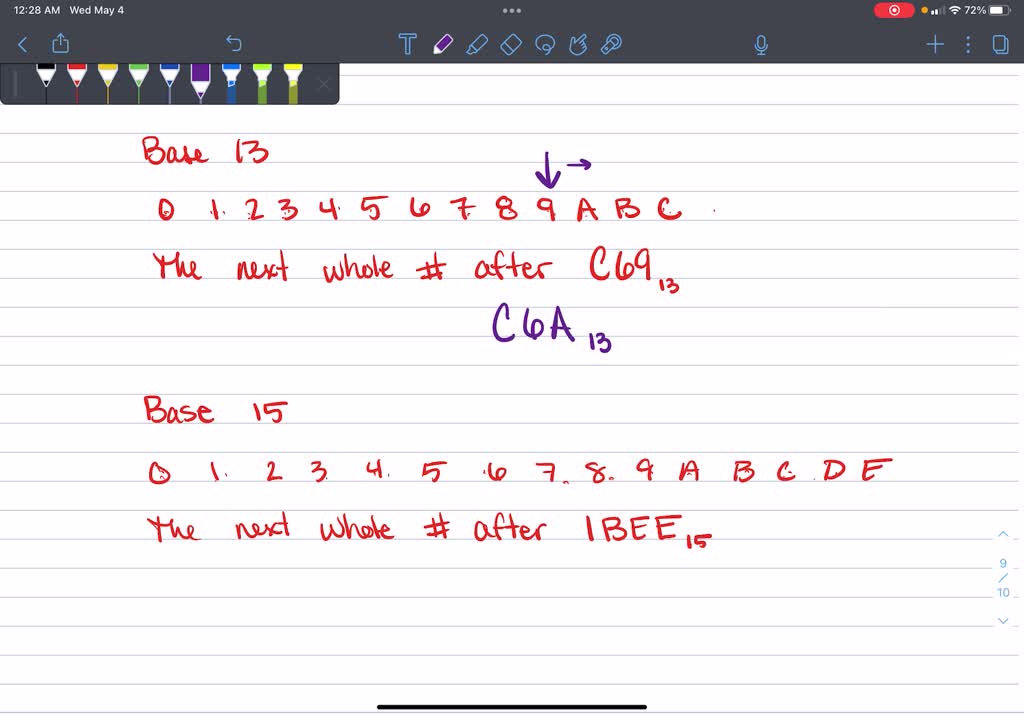 12:28 AM Wed May 4
72%
Base 13
0 1 2 3 4 5 6 7 8 9 A B C
The next whole # after C69₁₃
C6A₁₃
Base 15
0 1 2 3 4 5 6 7 8 9 A B C D E
The next whole # after 1BEE₁₅
9
/
10